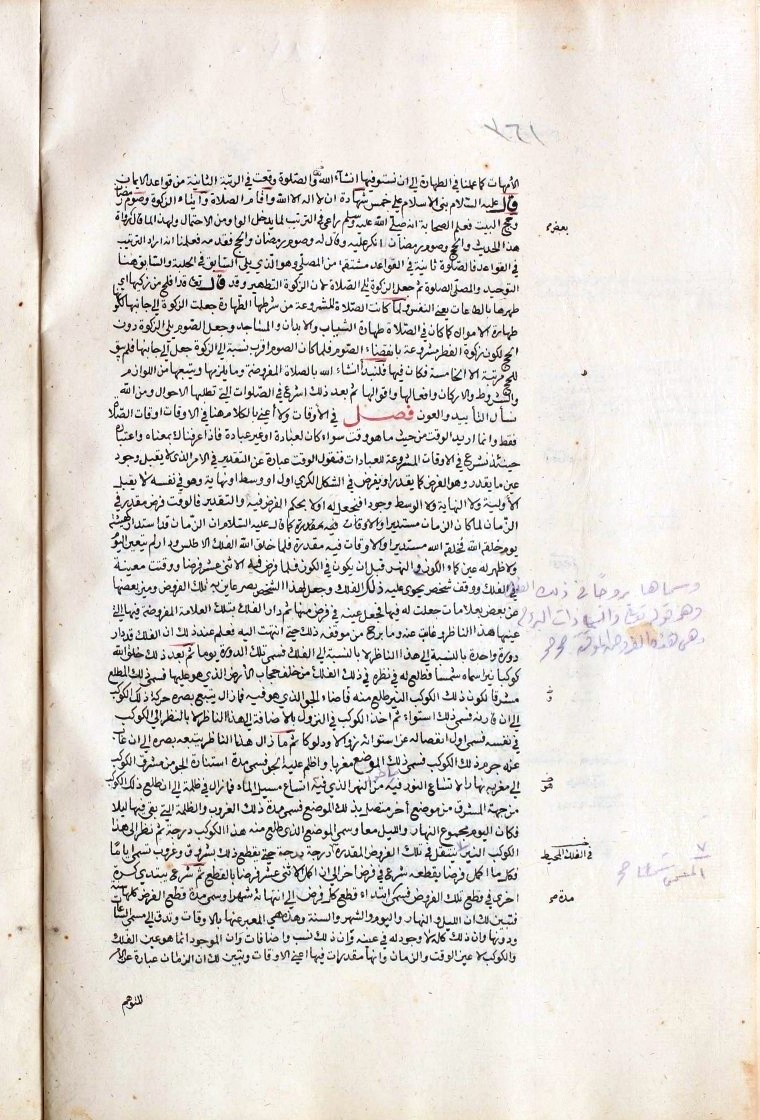 ٧٦١
الأمهات كما عملنا في الطهارة إلى ان نستوفيها انشآء الله والصلوة وقعت في الرتبة الثانية من قواعد الايمان
قال عليه السّلام بنى الاسلام على خمس شهادة ان لا اله الا الله واقام الصلاة وايتاء الزكوة وصوم رمضان
وحج البيت فعلم الصحابة انه صلى الله عليه وسلم راعى في الترتيب لما يدخل الواو من الاحتمال ولهذا لما قال
هذا الحديث والحج وصوم رمضان انكر عليه وقال له وصوم رمضان والحج فقدمه فعلمنا انه اراد الترتيب
في القواعد فالصلوة ثانية في القواعد مشتقة من المصلى وهو الذي يلى السابق في الحلبة والسابق هنا
التوحيد والمصلى الصلوة ثم جعل الزكوة تلى الصلاة لان الزكوة التطهير وقد قال تع قد افلح من زكيها اى
طهرها بالطاعات يعنى النفس ولما كانت الصّلاة المشروعة من شرطها الطهارة جعلت الزكوة الى جانبها لكو
طهارة الاموال كما كان في الصّلاة طهارة الثياب والابدان والمساجد وجعل الصّوم يلى الزكوة دون
الحج لكون زكوة الفطر مشروعة بانقضاء الصّوم فلما كان الصوم اقرب نسبة الى الزكوة جعل الى جانبها فلم يبق
للحج مرتبة الا الخامسة فكان فيها فلنبدأ انشاء الله بالصلاة المفروضة وما يلزمها ويتبعها من اللوازم
والشروط والاركان وافعالها واقوالها ثم بعد ذلك اشرع في الصّلوات التي تطلبها الاحوال ومن الله
نسأل التأييد والعون فصل في الاوقات ولا أعنى بالكلام هنا في الاوقات اوقات الصّلاة
فقط وانما اريد الوقت من حيث ما هو وقت سواء كان لعبادة او غير عبادة فاذا عرفناك بمعناه واعتباره
حينئذ نشرع في الاوقات المشروعة للعبادات فنقول الوقت عبارة عن التقدير في الامر الذي لا يقبل وجود
عين ما يقدر وهو الفرض كما يقدر او يفرض في الشكل الكرى اول او وسط او نهاية وهو في نفسه لا يقبل
الأولية ولا النهاية ولا الوسط وجودا فنجعل له اولا بحكم الفرض فيه والتقدير فالوقت فرض مقدر في
الزّمان لما كان الزمان مستديرا والاوقات فيه مقدرة كما قال عليه السّلام ان الزّمان قد استدار كهيئته
يوم خلقه الله فخلق الله مستديرا والاوقات فيه مقدرة فلما خلق الله الفلك الاطلس ودار لم يتعين اليوم
ولا ظهر له عين
في الفلك ووقف شخص يحوى عليه ذلك الفلك وجعل لهذا الشخص بصر عاين به تلك الفروض وميز بعضها
عن بعض بعلامات جعلت له فيها فجعل عينه في فرض منها ثم دار الفلك بتلك العلامة المفروضة فيها الى
عينها هذا الناظر وغابت عنه وما برح من موقفه ذلك حتى انتهت اليه فعلم عند ذلك ان الفلك قد دار
دورة واحدة بالنسبة الى هذا الناظر لا بالنسبة الى الفلك فسمى تلك الدورة يوما ثم بعد ذلك خلق الله
كوكبا نيرا سماه شمسا فطلع له في نظره في ذلك الفلك من خلف حجاب الأرض الذي هو عليها فسمى ذلك المطلع
مشرقا لكون ذلك الكوكب النير طلع منه فاضاء الجو الذي هو فيه فما زال يتبع بصره حركة ذلك الكوكب
الى ان فسمى ذلك استواء ثم اخذ الكوكب في النزول بالاضافة الى هذا الناظر لا بالنظر الى الكوكب
في نفسه فسمى اول انفصاله عن استوائه زوالا ودلوكا ثم ما زال هذا الناظر يتبعه بصره الى ان غاب
عنه جرم ذلك الكوكب فسمى ذلك الموضع مغربا واظلم عليه الجو فسمى مدة استنارة الجو من مشرق الكوكب
الى مغربه نهارا لاتساع النور فيه من النهر الذي فيه اتساع مسيل الماء فما زال في ظلمة الى ان طلع ذلك الكوكب
من جهة المشرق من موضع آخر متصل بذلك الموضع فسمى مدة ذلك الغروب والظلمة التي بقى فيها ليلا
فكان اليوم مجموع النهار والليل معا وسمى الموضع الذي طلع منه هذا الكوكب درجة ثم نظر الى هذا
الكوكب النير ينتقل في تلك الفروض المقدرة درجة درجة حتى يقطع ذلك بشروق وغروب تسمى ايامًا
فكل ما اكمل فرضا بقطعه شرع في فرض آخر الى ان اكمل الاثنى عشر فرضا بالقطع ثم شرع يبتدى كرة
اخرى في قطع تلك الفروض فسمى ابتداء قطع كل فرض الى انتهائه شهرا وسمى مدة قطع الفروض كلها سنة
فتبين لك ان الليل والنهار واليوم والشهر والسنة هذه هي المعبر عنها بالاوقات وتدق الى مسمى الساعات
ودونها وان ذلك كله لا وجود له في عينه وان ذلك نسب واضافات وان الموجود انما هو عين الفلك
والكوكب لا عين الوقت والزمان وانها مقدرات فيها اعنى الاوقات وتبين لك ان الزمان عبارة عن الامر
المتوهم
بعضهم
وسماها بروجا في ذلك
وهو قوله تعا والسماء ذات البروج
في الفلك المحيط
مدة صح